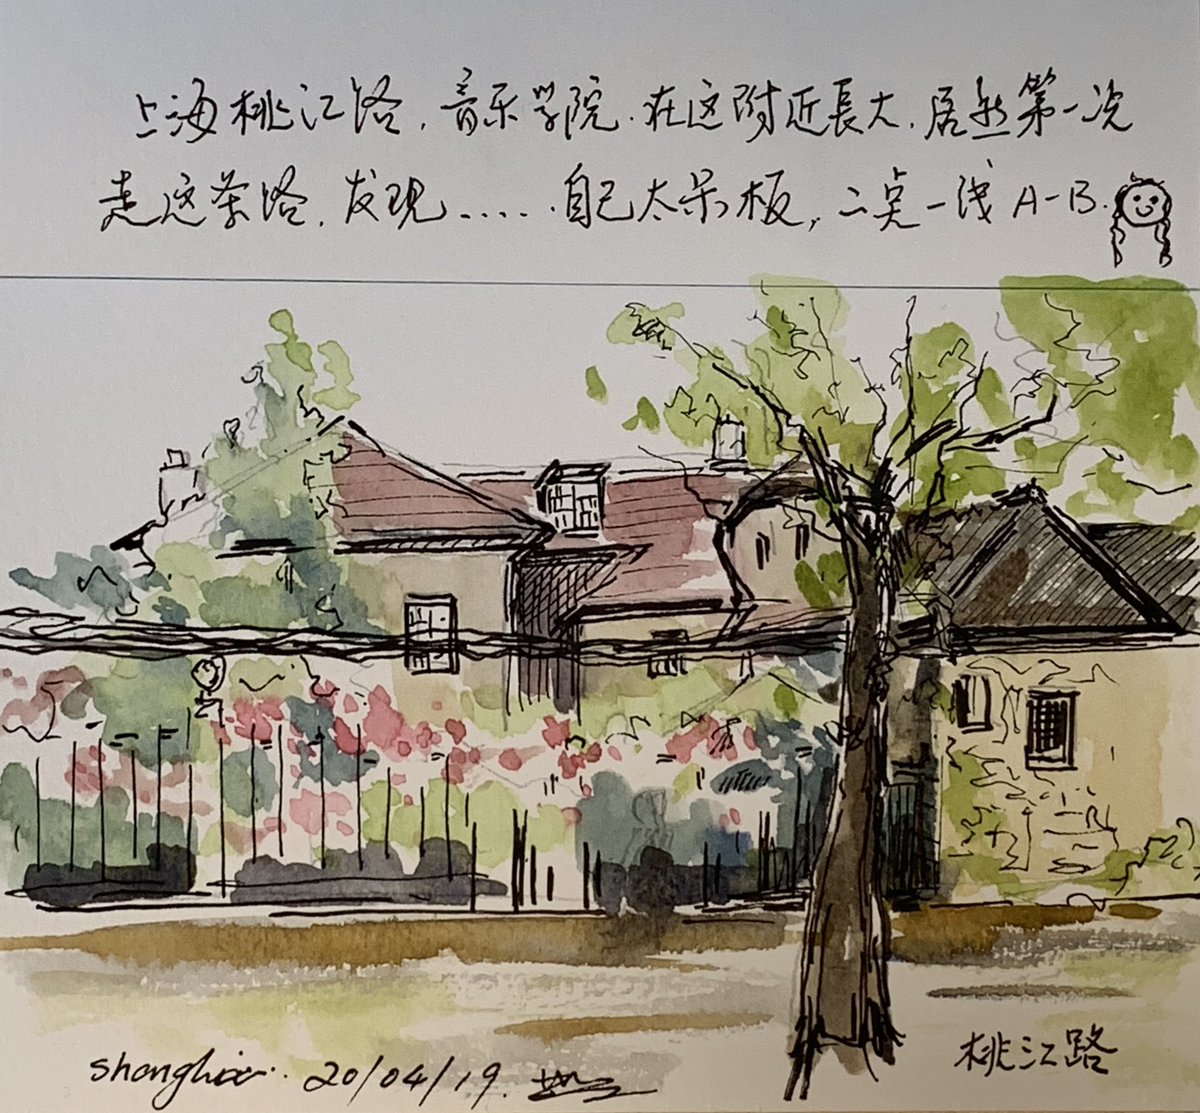 上海桃江路，音乐学院．在这附近長大，居然第一次
走这条路，发现......自己太呆板，二点一线 A-B.
shanghai. 20/04/19.
桃江路